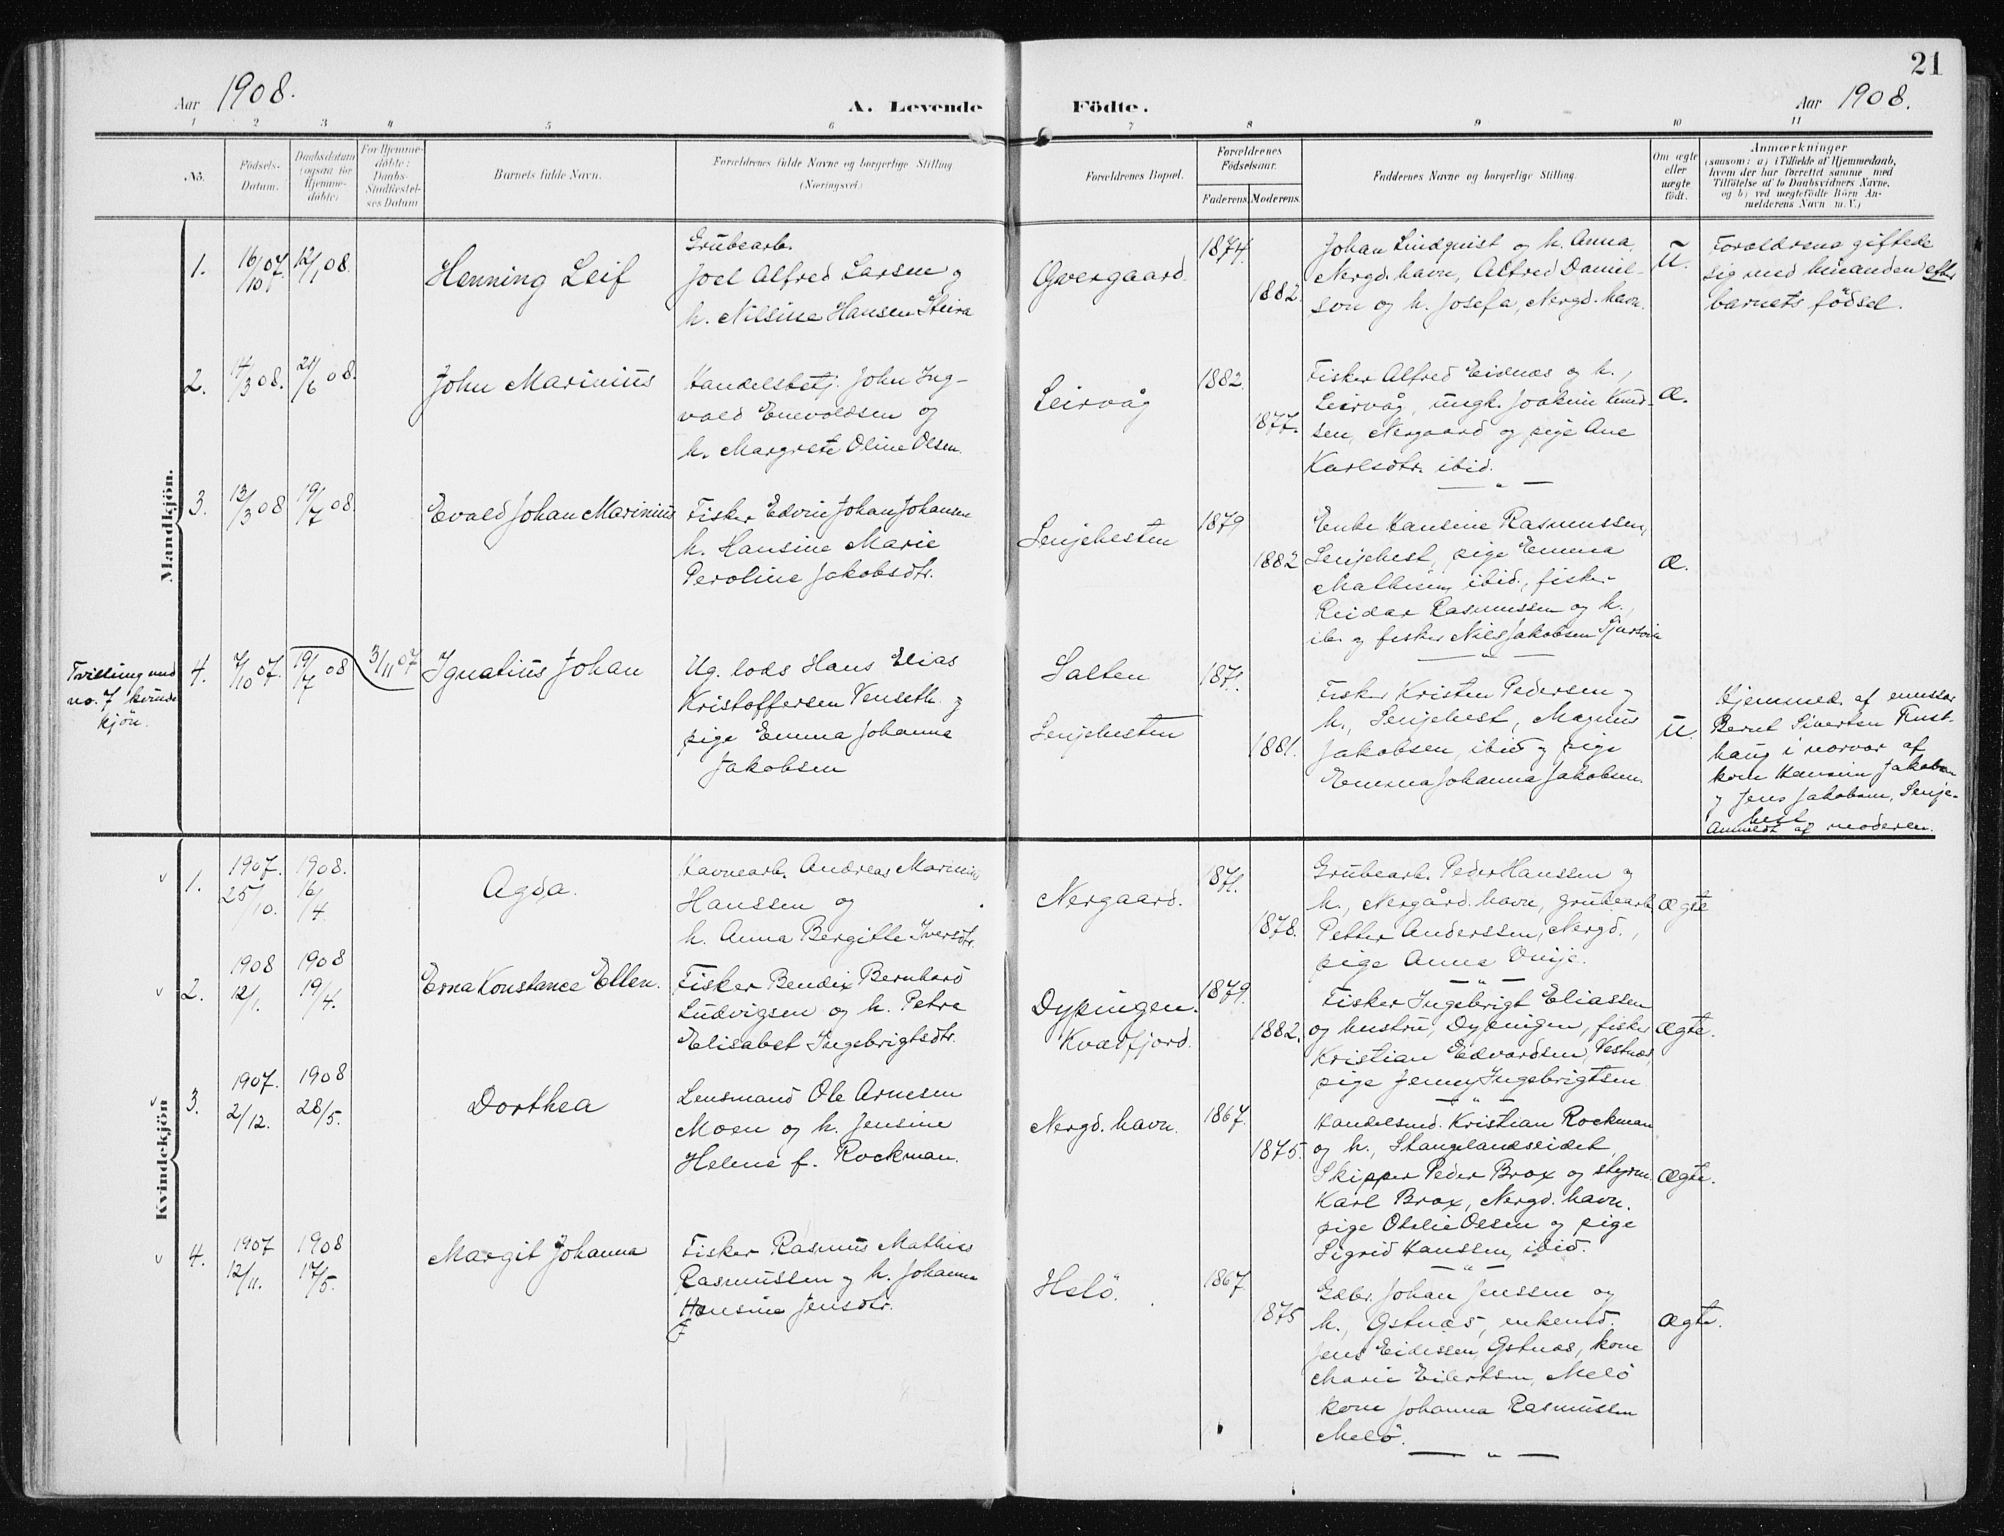 21
Aar 1908.
A. Levende Födte.
Aar 1908.
1 2 3 4 5 6 7 8 9 10 11
No.
Födsels-
Datum.
Daabsdatum
(ogsaa for
Hjemme-
döbte)
For Hjemme-
döbte:
Daabs-
Stadfæstel-
ses Datum
Barnets fulde Navn.
Forældrenes fulde Navne og borgerlige Stilling
(Næringsvei)
Forældrenes Bopæl.
Forældrenes
Födselsaar.
Faderens.
Moderens.
Faddernes Navne og borgerlige Stilling.
Om ægte
eller
uægte
födt.
Anmærkninger
(saasom: a) i Tilfælde af Hjemmedaab,
hvem der har forrettet samme med
Tilföielse af to Daabsvidners Navne,
og b) ved uegtefödte Börn An-
melderens Navn m. V.)
Mandkjön.
1.
16/10 07.
12/1 08.
Henning Leif
Grubearb.
Joel Alfred Larsen og
h. Nilsine Hansen Steira
Övergaard.
1874.
1882.
Johan Lindquist og h. Anna,
Nergd. havn, Alfred Daniel-
son og h. Josefa, Nergd. havn.
u.
Forældrene giftede
sig med hinanden efter
barnets födsel.
2.
14/3 08.
21/6 08.
John Marinius
Handelsbetj. John Ing-
vald Enevoldsen og
h. Margrete Oline Olsen.
Leirvåg
1882.
1877.
Fisker Alfred Eidnæs og h.,
Leirvåg, ungk. Joakim Knud-
sen, Nergaard og pige Ane
Karlsdtr. ibid.
æ.
3.
13/3 08
19/7 08.
Evald Johan Marinius
Fisker Edvin Johan Johansen
h. Hansine Marie
Peroline Jakobsdtr.
Senjehesten
1879
1882
Enke Hansine Rasmussen,
Senjehest, pige Emma
Mathisen, ibid., fisker
Reidar Rasmussen og h.,
ib. og fisker Nils Jakobsen
æ.
Tvilling med
no. 7 kvinde
kjön.
4.
7/10 07.
19/7 08
3/11 07
Ignatius Johan
Ug. lods Hans Elias
Kristoffersen Venseth og
pige Emma Johanna
Jakobsen
Salten
Senjehesten
1871.
1881.
Fisker Kristen Pedersen og
h., Senjehest, Magnus
Jakobsen, ibid og pige
Emma Johanna Jakobsen.
u.
Hjemmed. af emissær
Bernt Sivertsen
haug i nærvær af
kone Hansine Jakobsen
og Jens Jakobsen, Senje-
hest
Anmeldt af moderen.
Kvindekjön
1.
1907.
25/10.
1908.
16/4.
Agda.
Havnearb. Andreas Marinius
Hanssen og
h. Anna Bergitte Iversdtr.
Nergaard.
1871.
1878.
Grubearb. Peder Hanssen og
h., Nergård. havn, grubearb.
Petter Anderssen, Nergd.,
pige Anna Vinje.
ægte
2.
1908
12/1.
1908
19/4.
Erna Konstance Ellen.
Fisker Bendix Bernhard
Ludvigsen og h. Petra
Elisabet Ingebrigtsdtr.
Dypingen.
Kvæfjord.
1879.
1882.
Fisker Ingebrigt Eliassen
og hustru, Dypingen, fisker
Kristian Edvardsen, Vestnæs,
pige Jenny Ingebrigtsen
ægte.
3.
1907.
2/12.
1908
28/5.
Dorthea
Lensmand Ole Arnesen
Moen og h. Jensine
Helene f. Rockman.
Nergd. havn.
1867.
1875.
Handelsmd. Kristian Rockman
og h., Stangelandseidet,
Skipper Peder Brox og styrm.
Karl Brox, Nergd. havn.
pige Otelie Olsen og pige
Sigrid Hanssen, ibid.
ægte.
4.
1907
12/11.
1908
17/5.
Margit Johanna
Fisker Rasmus Mathias
Rasmussen og h. Johanna
Hansine Jensdtr.
Helö.
1867
1875
Gdbr. Johan Jenssen og
h., Östnæs, enkemd.
Jens Eidissen, Östnæs, kone
Marie Eilertsen, Melö
kone Johanna Rasmussen
Melö.
ægte.